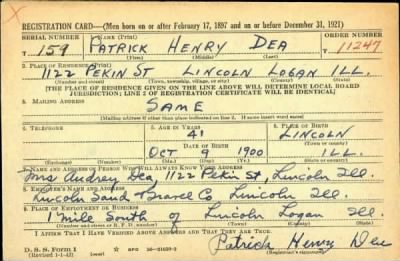 REGISTRATION CARD—(Men born on or after February 17, 1897 and on or before December 31, 1921)
SERIAL NUMBER 1. NAME (Print) ORDER NUMBER
T 159 PATRICK HENRY DEA T 11247
(First) (Middle) (Last)
2. PLACE OF RESIDENCE (Print)
1122 PEKIN ST LINCOLN LOGAN ILL.
(Number and street) (Town, township, village, or city) (County) (State)
[THE PLACE OF RESIDENCE GIVEN ON THE LINE ABOVE WILL DETERMINE LOCAL BOARD
JURISDICTION; LINE 2 OF REGISTRATION CERTIFICATE WILL BE IDENTICAL]
3. MAILING ADDRESS
SAME
[Mailing address if other than place indicated on line 2. If same insert word same]
4. TELEPHONE 5. AGE IN YEARS 6. PLACE OF BIRTH
41 LINCOLN
DATE OF BIRTH (Town or county)
OCT 9 1900 ILL.
(Exchange) (Number) (Mo.) (Day) (Yr.) (State or country)
7. NAME AND ADDRESS OF PERSON WHO WILL ALWAYS KNOW YOUR ADDRESS
Mrs Audrey Dea, 1122 Pekin St, Lincoln Ill.
8. EMPLOYER'S NAME AND ADDRESS
Lincoln Sand & Gravel Co Lincoln Ill.
9. PLACE OF EMPLOYMENT OR BUSINESS
1 Mile South of Lincoln Logan Ill.
(Number and street or R. F. D. number) (Town) (County) (State)
I AFFIRM THAT I HAVE VERIFIED ABOVE ANSWERS AND THAT THEY ARE TRUE.
D. S. S. Form 1
(Revised 1-1-42) (over)
Patrick Henry Dea